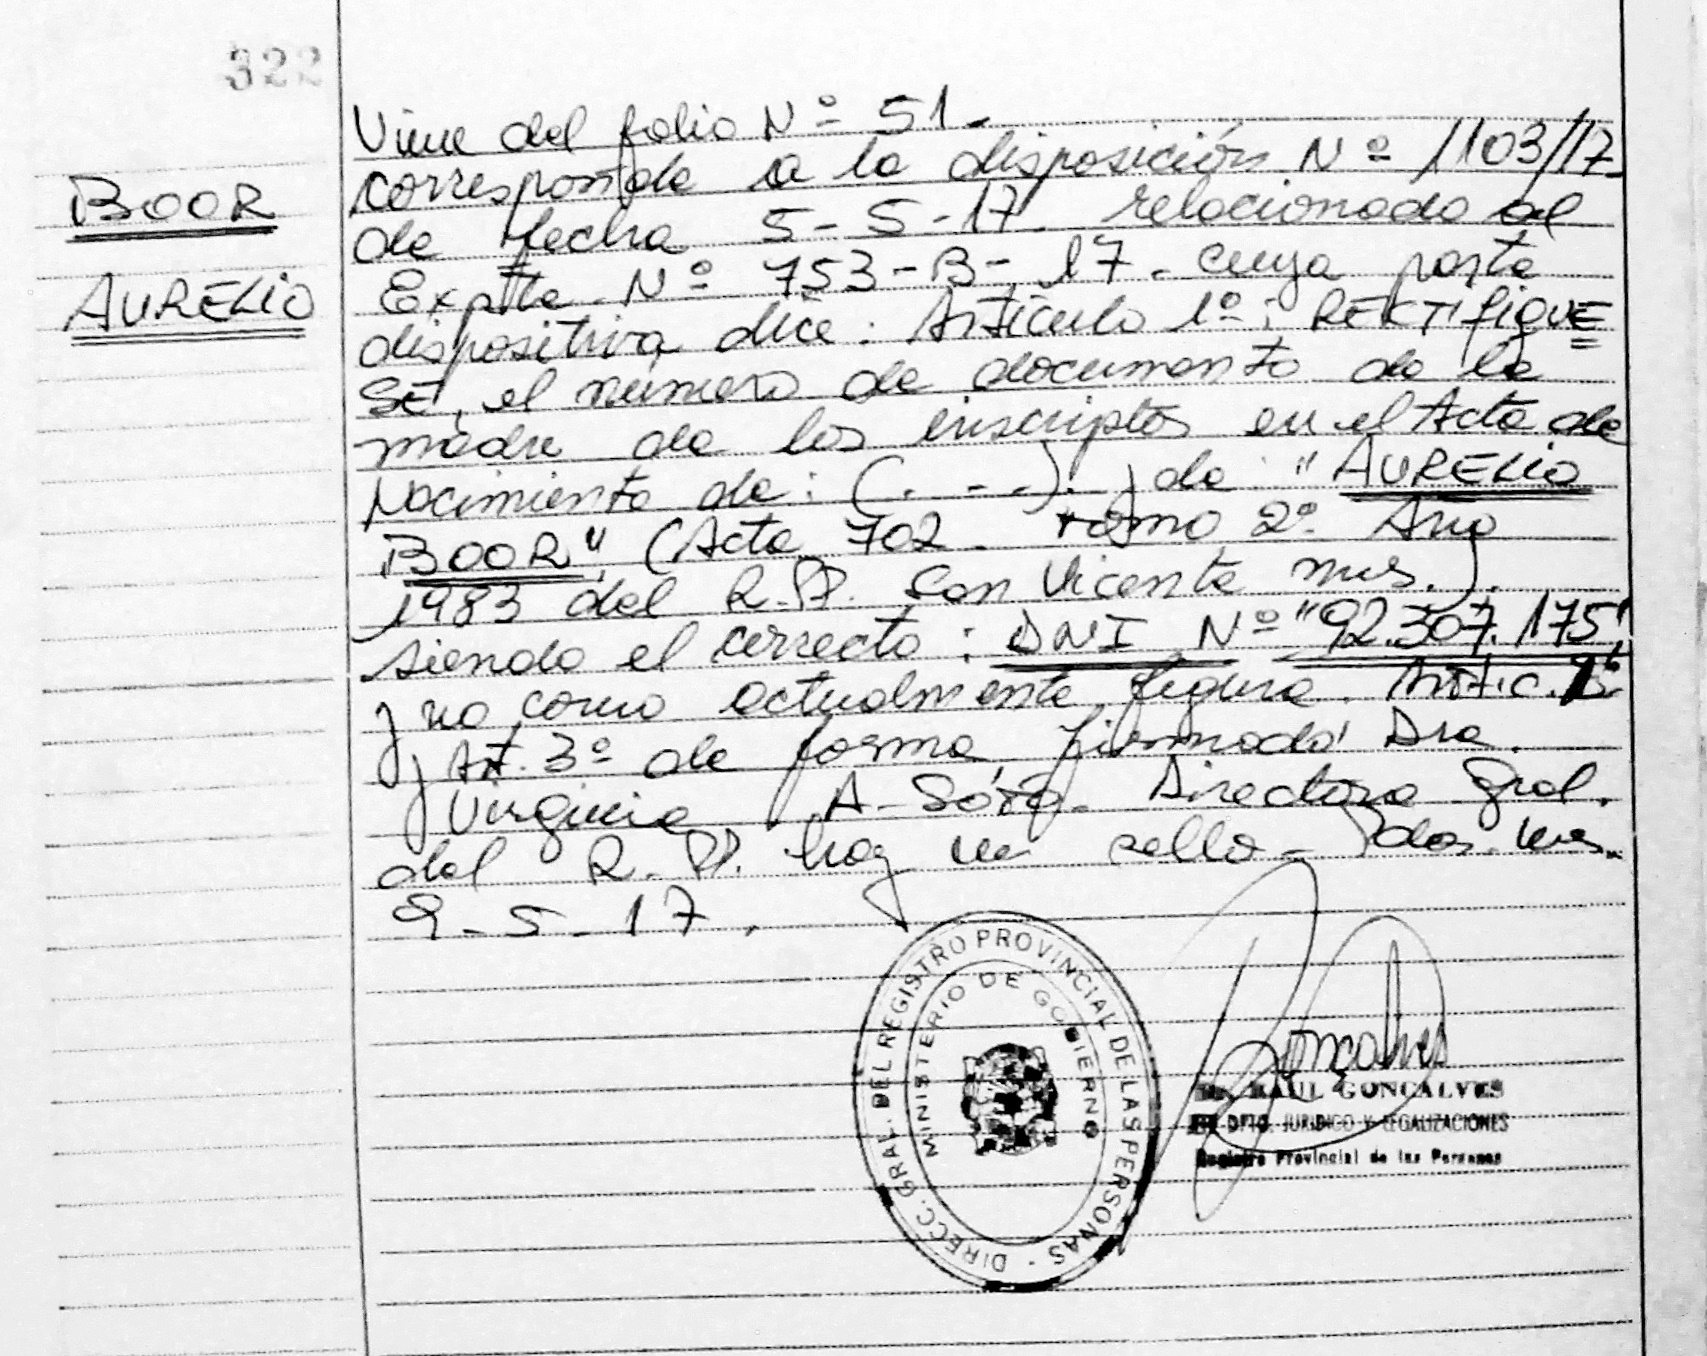 322
BOOR
AURELIO
Viene del folio Nº 51.
corresponde a la disposición Nº 1103/17
de fecha 5-5-17. relacionado al
Expte. Nº 753-B-17. cuya parte
dispositiva dice: Artículo 1º: REKTIFIQUE
SE, el número de documento de la
madre de los inscriptos en el Acta de
Nacimiento de: (. - - .). y de: "AURELIO
BOOR", (Acta 702. tomo 2º. Año
1983 del R.P. San Vicente mns.).
siendo el correcto: DNI Nº "92.307.175"
y no como actualmente figura. Artic.
y Art. 3º de forma firmado: Dra.
Virginia A. Directora Gral.
del R.P. hay un sello. Pdas. mns.
9-5-17.
DIRECC. GRAL. DEL REGISTRO PROVINCIAL DE LAS PERSONAS -
MINISTERIO DE GOBIERNO
Gonçalves
RAUL GONCALVES
DPTO. JURIDICO Y LEGALIZACIONES
Registro Provincial de las Personas